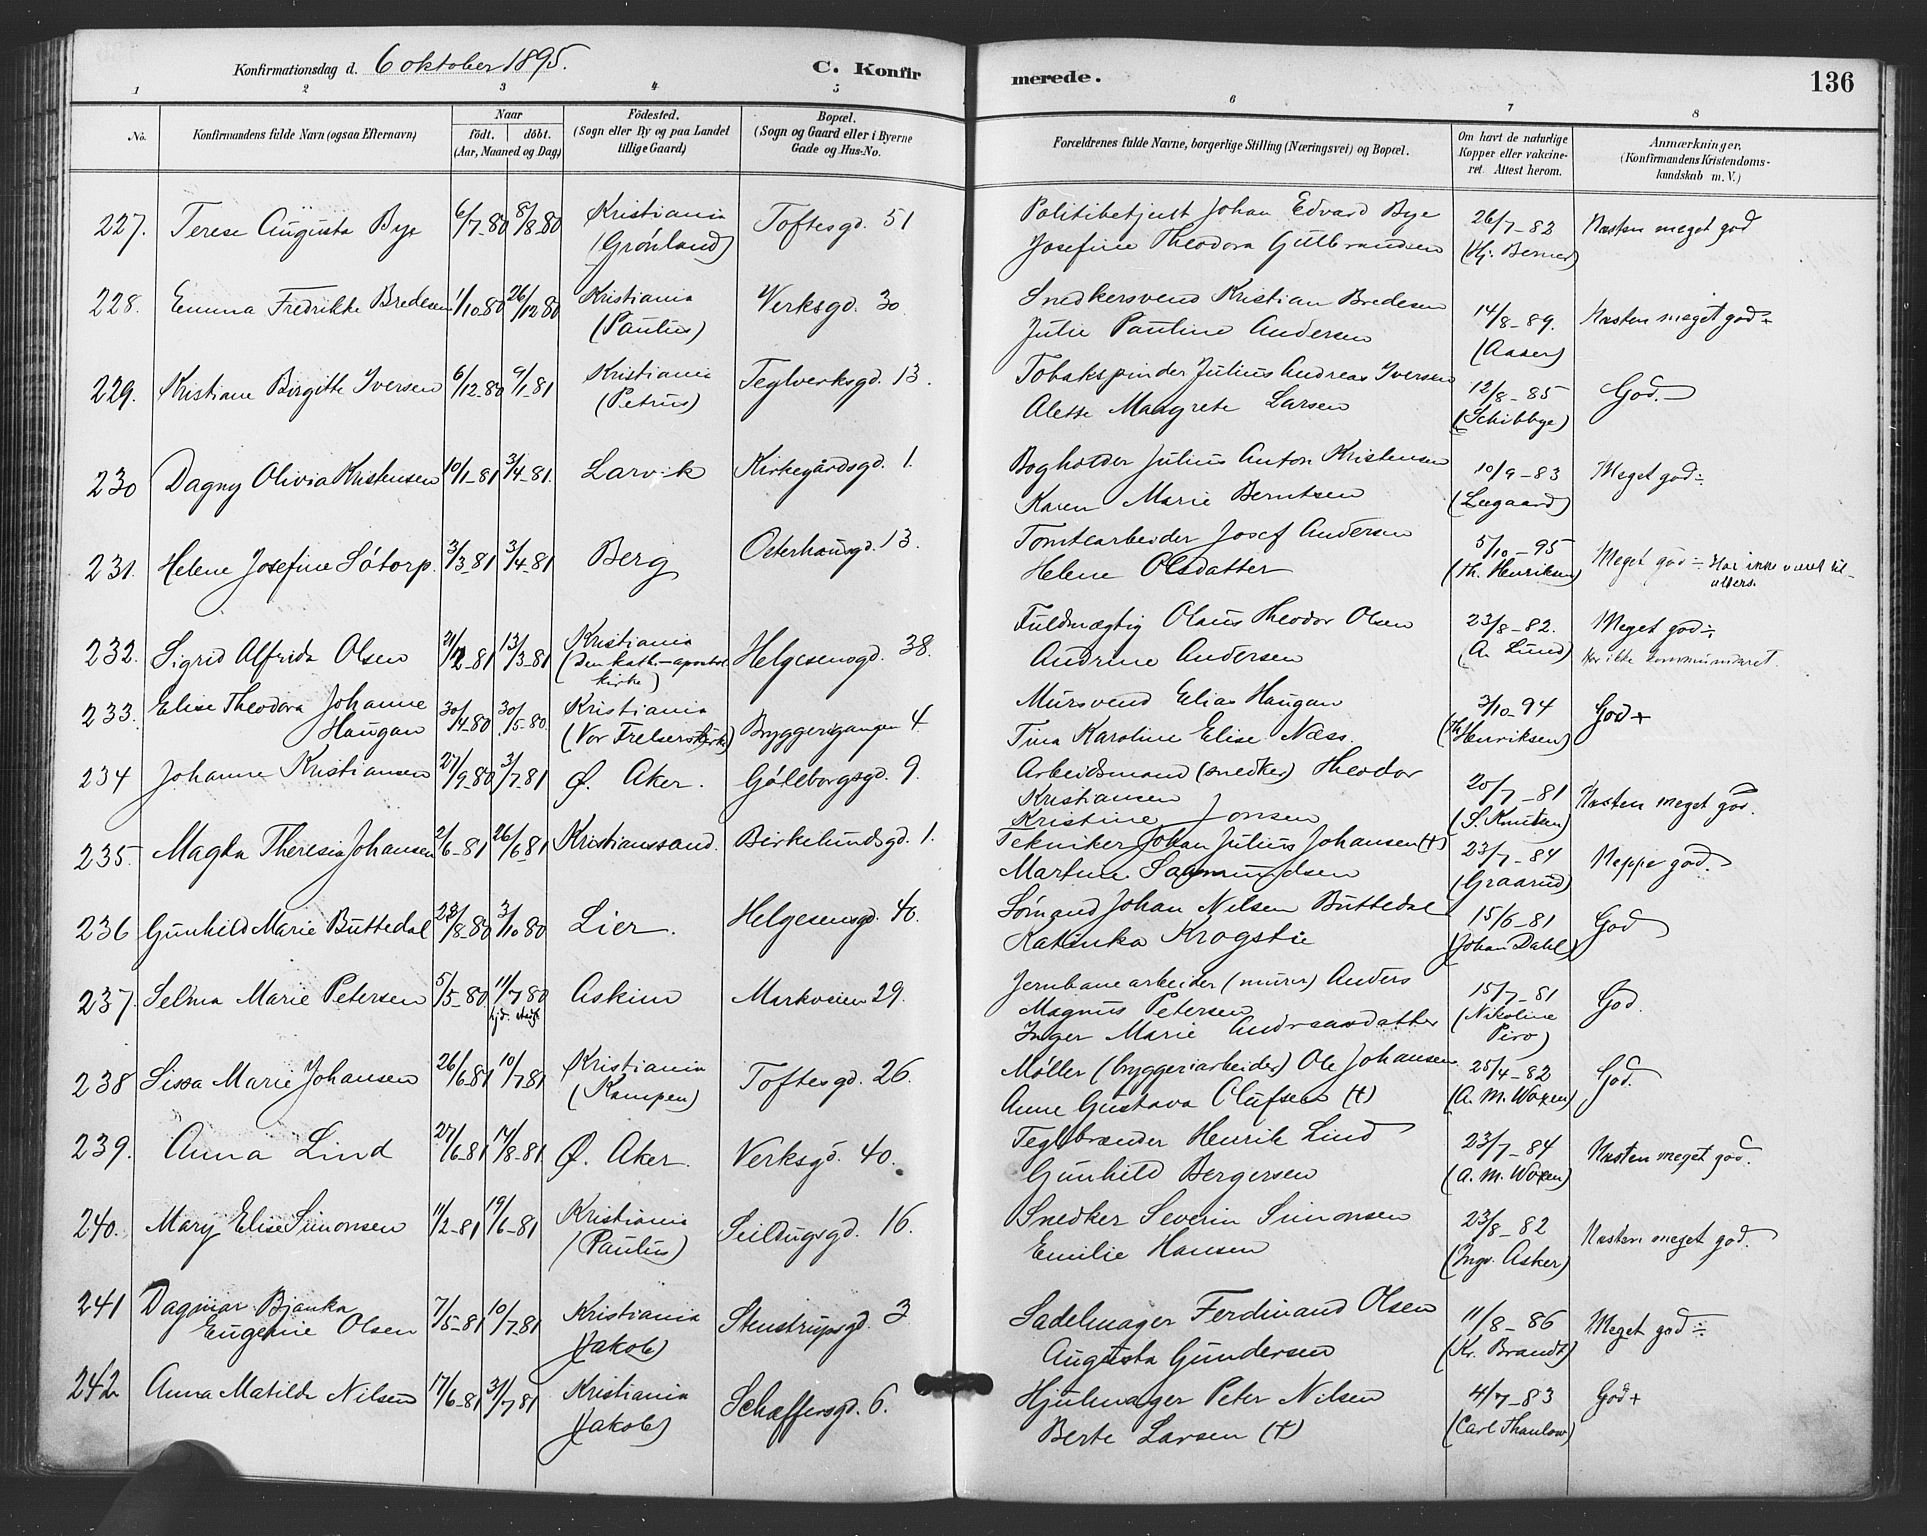 Konfirmationsdag d. 6 oktober 1895.
C. Konfirmerede.
136
1 2 3 4 5 6 7 8
No.
Konfirmandens fulde Navn (ogsaa Efternavn)
Naar
födt. döbt.
(Aar, Maaned og Dag)
Födested.
(Sogn eller By og paa Landet
tillige Gaard)
Bopæl.
(Sogn og Gaard eller i Byerne
Gade og Hus-No.
Forældrenes fulde Navne, borgerlige Stilling (Næringsvei) og Bopæl.
Om havt de naturlige
Kopper eller vakcine-
ret. Attest herom.
Anmærkninger,
(Konfirmandens Kristendoms-
kundskab m. V.)
227. Terese Augusta Bye 6/7-80 8/8-80 Kristiania (Grönland) Toftesgd. 51
Politibetjent Johan Edvard Bye 26/7-82 Næsten meget god
Josefine Theodora Gulbrandsen (Hj. Berner)
228. Emma Fredrikke Bredesen 1/10-80 26/12-80 Kristiania (Paulus) Verksgd. 30
Snedkersvend Kristian Bredesen 14/8-89. Næsten meget god +
Julie Pauline Andersen (Aaser)
229. Kristiane Birgitte Iversen 6/12-80 9/1-81 Kristiania (Petrus) Teglverksgd. 13.
Tobakspinder Julius Andreas Iversen 12/8-85 God.
Alette Margrete Larsen (Schibbye)
230 Dagny Olivia Kristensen 10/1-81 3/4-81. Larvik Kirkegårdsgd. 1.
Bogholder Julius Anton Kristensen 10/9-83 Meget god ÷
Karen Marie Berntsen (Leegaard)
231. Helene Josefine Sötorp. 3/3-81 3/4-81 Berg Osterhausgd. 13.
Tomtearbeider Josef Andersen 5/10-95 Meget god ÷ Har ikke været til
Helene Olsdatter (Th. Henriksen) alters.
232. Sigrid Alfrida Olsen 21/2-81 13/3-81 Kristiania (Den kath.-apostol. kirke) Helgesensgd. 38.
Fuldmægtig Olaus Theodor Olsen 23/8-82. Meget god ÷
Andrine Andersen (A. Lund) Har ikke kommuniceret.
233. Elise Theodora Johanne Haugan 30/4-80 30/5-80. Kristiania (Vor Frelsers kirke) Bryggerigangen 4
Mursvend Elias Haugan 3/10-94 God +
Tina Karoline Elise Næss. (Th. Henriksen)
234 Johanne Kristiansen 27/9-80 3/7-81 Ø. Aker. Göteborgsgd. 9.
Arbeidsmand (snedker) Theodor 20/7-81 Næsten meget god.
Kristiansen
Kristine Jonsen (S. Knutsen)
235. Magda Theresia Johansen 2/6-81 26/6 81 Kristianssand. Birkelundsgd. 1.
Tekniker Johan Julius Johansen (†) 23/7-84 Neppe god.
Martine Salmundsen (Graarud)
236 Gunhild Marie Buttedal 23/8-80 3/10 80 Lier. Helgesensgd. 40.
Sömand Johan Nilsen Buttedal 15/6-81 God
Katinka Krogstie (Johan Dahl)
237. Selma Marie Petersen 5/5-80 11/7 80 Askim Markveien 29.
Jernbanearbeider (murer) Anders 15/7-81 God.
Magnus Petersen (Nikoline
Inger Marie Andreasdatter Piro)
238 Sissa Marie Johansen 26/6 81 10/7 81 Kristiania (Kampen) Toftesgd. 26.
Møller (bryggeriarbeider) Ole Johansen 25/4-82 God.
Anne Gustava Olufsen (†) (A. M. Woxen)
239. Anna Lind 27/6-81 14/8-81. Ø. Aker. Verksgd. 40.
Teglbrænder Henrik Lind 23/7-84 Næsten meget god.
Gunhild Bergersen (A. M. Woxen)
240. Mary Elise Simonsen 11/2-81 19/6-81 Kristiania (Paulus) Seildugsgd. 16.
Snedker Severin Simonsen 23/8-82 Næsten meget god.
Emilie Hansen (Ingv. Asker)
241 Dagmar Bjanka Eugenie Olsen 7/5-81 10/7-81 Kristiania (Jakob) Stenstrupsgd. 3
Sadelmager Ferdinand Olsen 11/8-86 Meget god ÷
Augusta Gundersen (Kr. Brandt)
242 Anna Matilde Nilsen 17/6-81 31/7 81 Kristiania (Jakob) Schæffersgd. 6.
Hjulmager Peter Nilsen 4/7-83 God +
Berte Larsen (†) (Carl Thaulow)